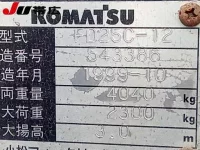 JU帯広
KOMATSU
型式 FD25C-12
造番号 543366
造年月 1999-10
両重量 4040 kg
大荷重 2300 kg
大揚高 3.0 m